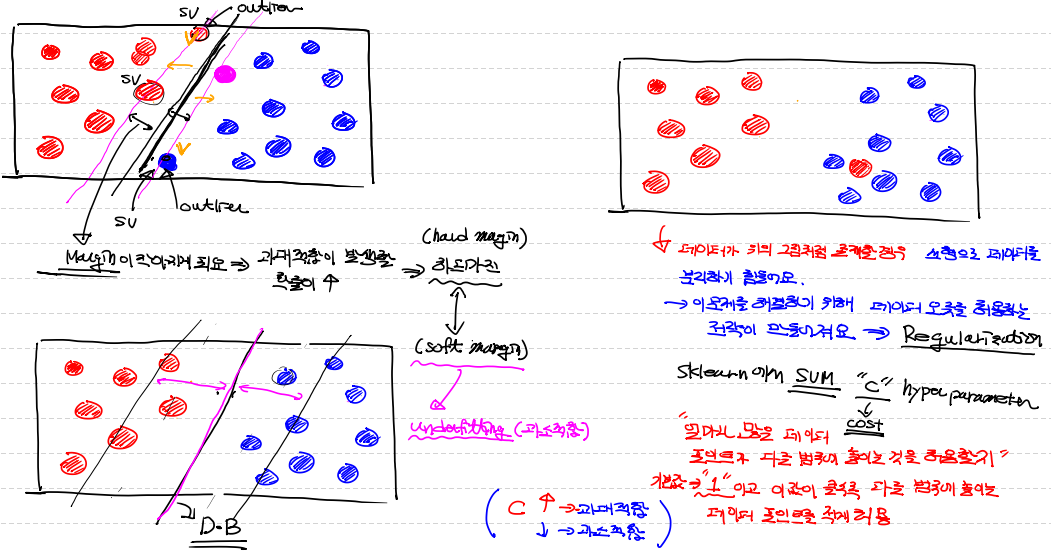 SV outlier
SV
SV outlier
Margin이 작아지게 되요 ⇒ 과대적합이 발생할
확률이 ↑
⇒ 하드마진
(hard margin)
(soft margin)
underfitting (과소적합)
D.B
(C ↑ → 과대적합
↓ → 과소적합)
↓ 데이터가 위의 그림처럼 존재할경우 선형으로 데이터를
분리하기 힘들어요.
→ 이 문제를 해결하기 위해 데이터 오류를 허용하는
전략이 만들어져요 ⇒ Regularization
sklearn에서 SVM "C" hyper parameter
cost
"얼마나 많은 데이터
포인트가 다른 범주에 놓이는 것을 허용할지"
기본값 → "1" 이고 이 값이 클수록 다른 범주에 놓이는
데이터 포인트를 적게 허용